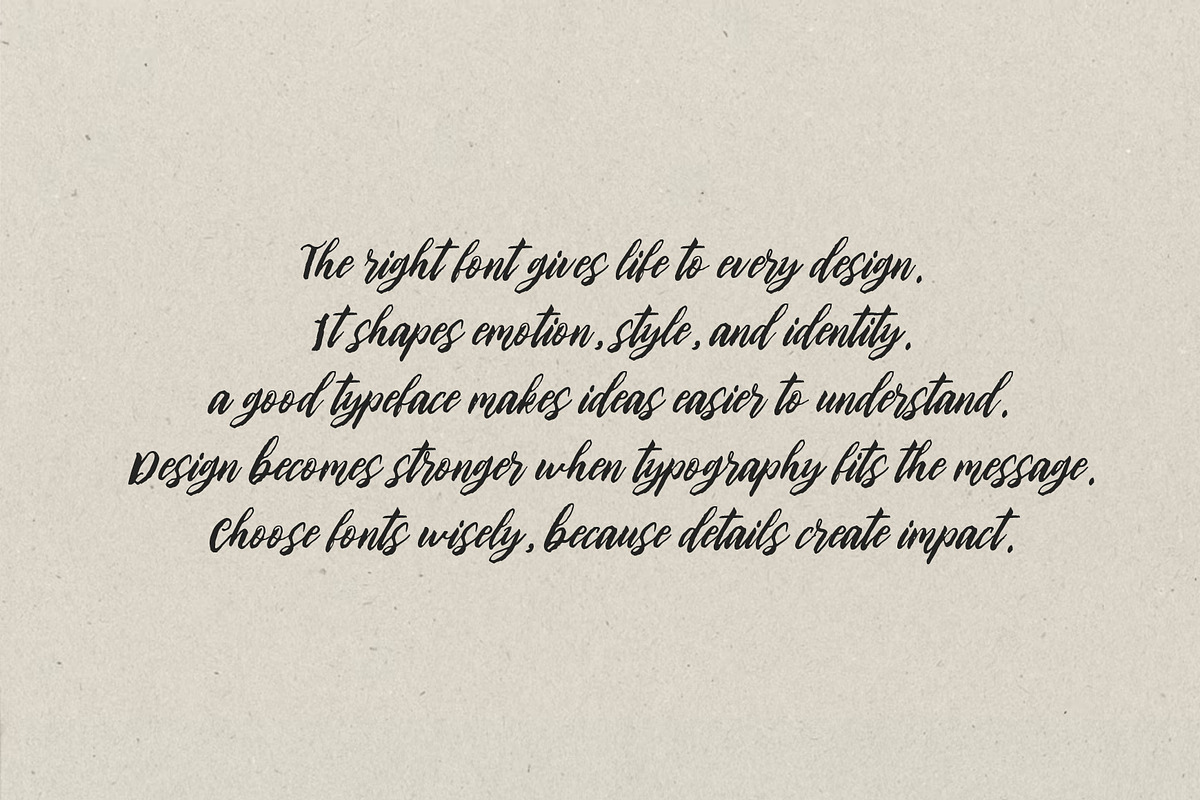 The right font gives life to every design.
It shapes emotion, style, and identity.
a good typeface makes ideas easier to understand.
Design becomes stronger when typography fits the message.
Choose fonts wisely, because details create impact.